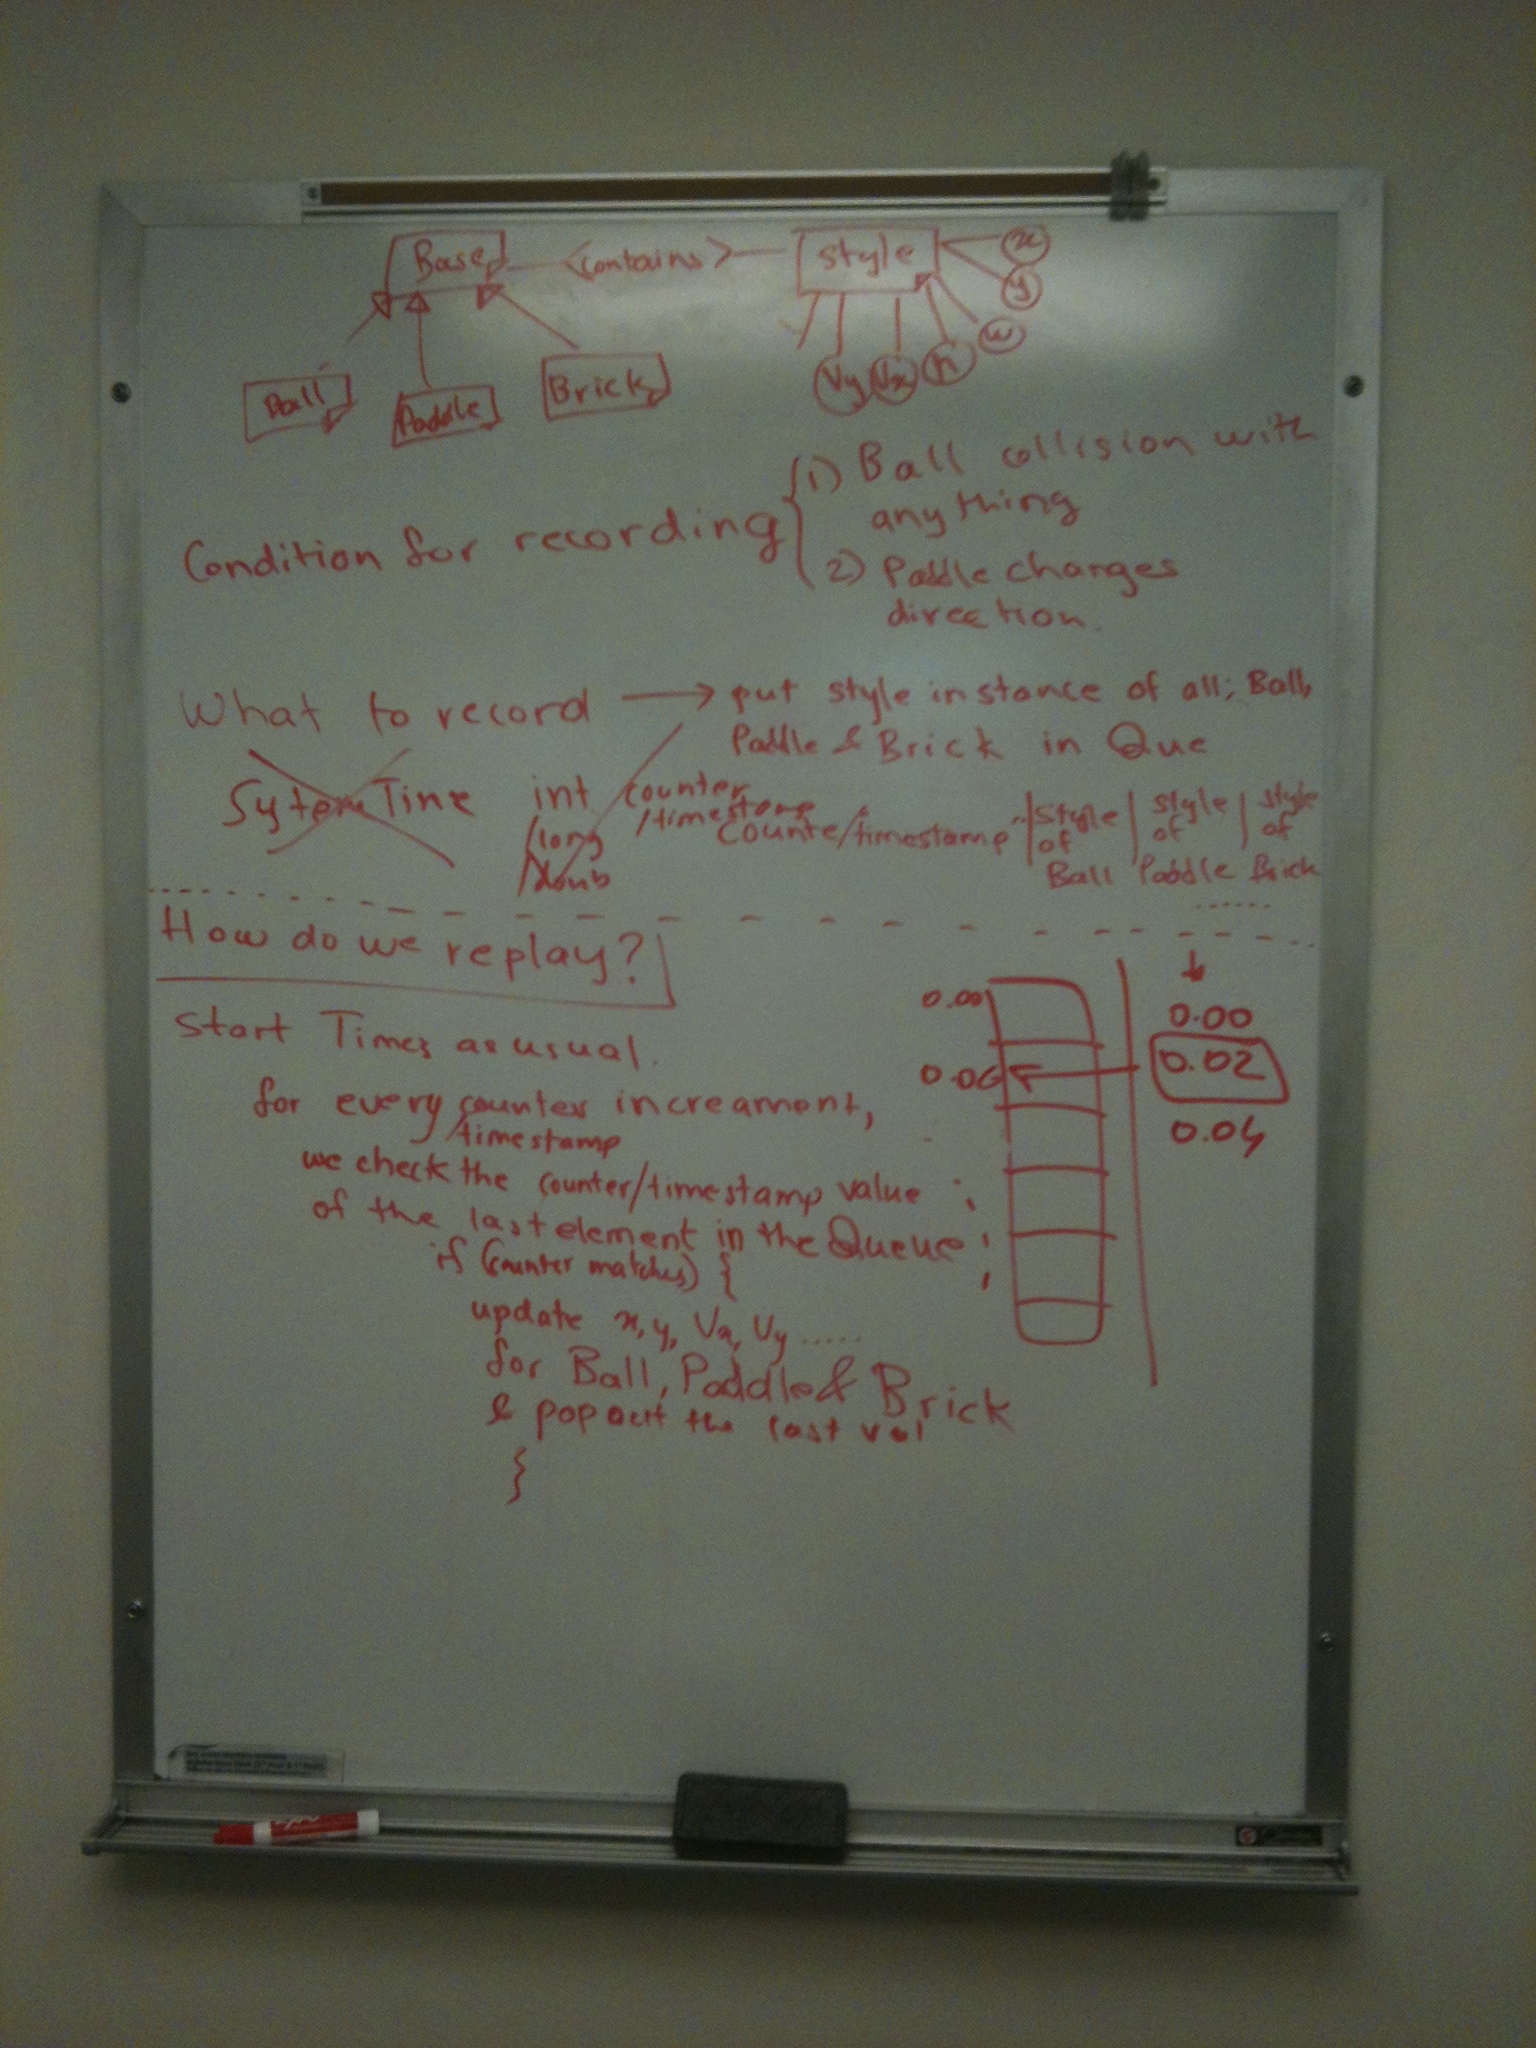 Base <contains> Style x
y
w
h
Vx
Vy
Ball Paddle Brick
Condition for recording { (1) Ball collision with
anything
2) Paddle changes
direction.
What to record → put style instance of all; Ball,
Paddle & Brick in Que
Sytem Time int counter
/timestamp
/long
/doub
Counte/timestamp | Style | Style | Style
of of of
Ball Paddle Brick
How do we replay?
Start Times as usual.
for every counter increament,
/timestamp
we check the counter/timestamp value
of the last element in the Queue
if (counter matches) {
update x, y, Vx, Vy .....
for Ball, Paddle & Brick
& pop out the last val
}
0.00
0.06
0.00
0.02
0.04